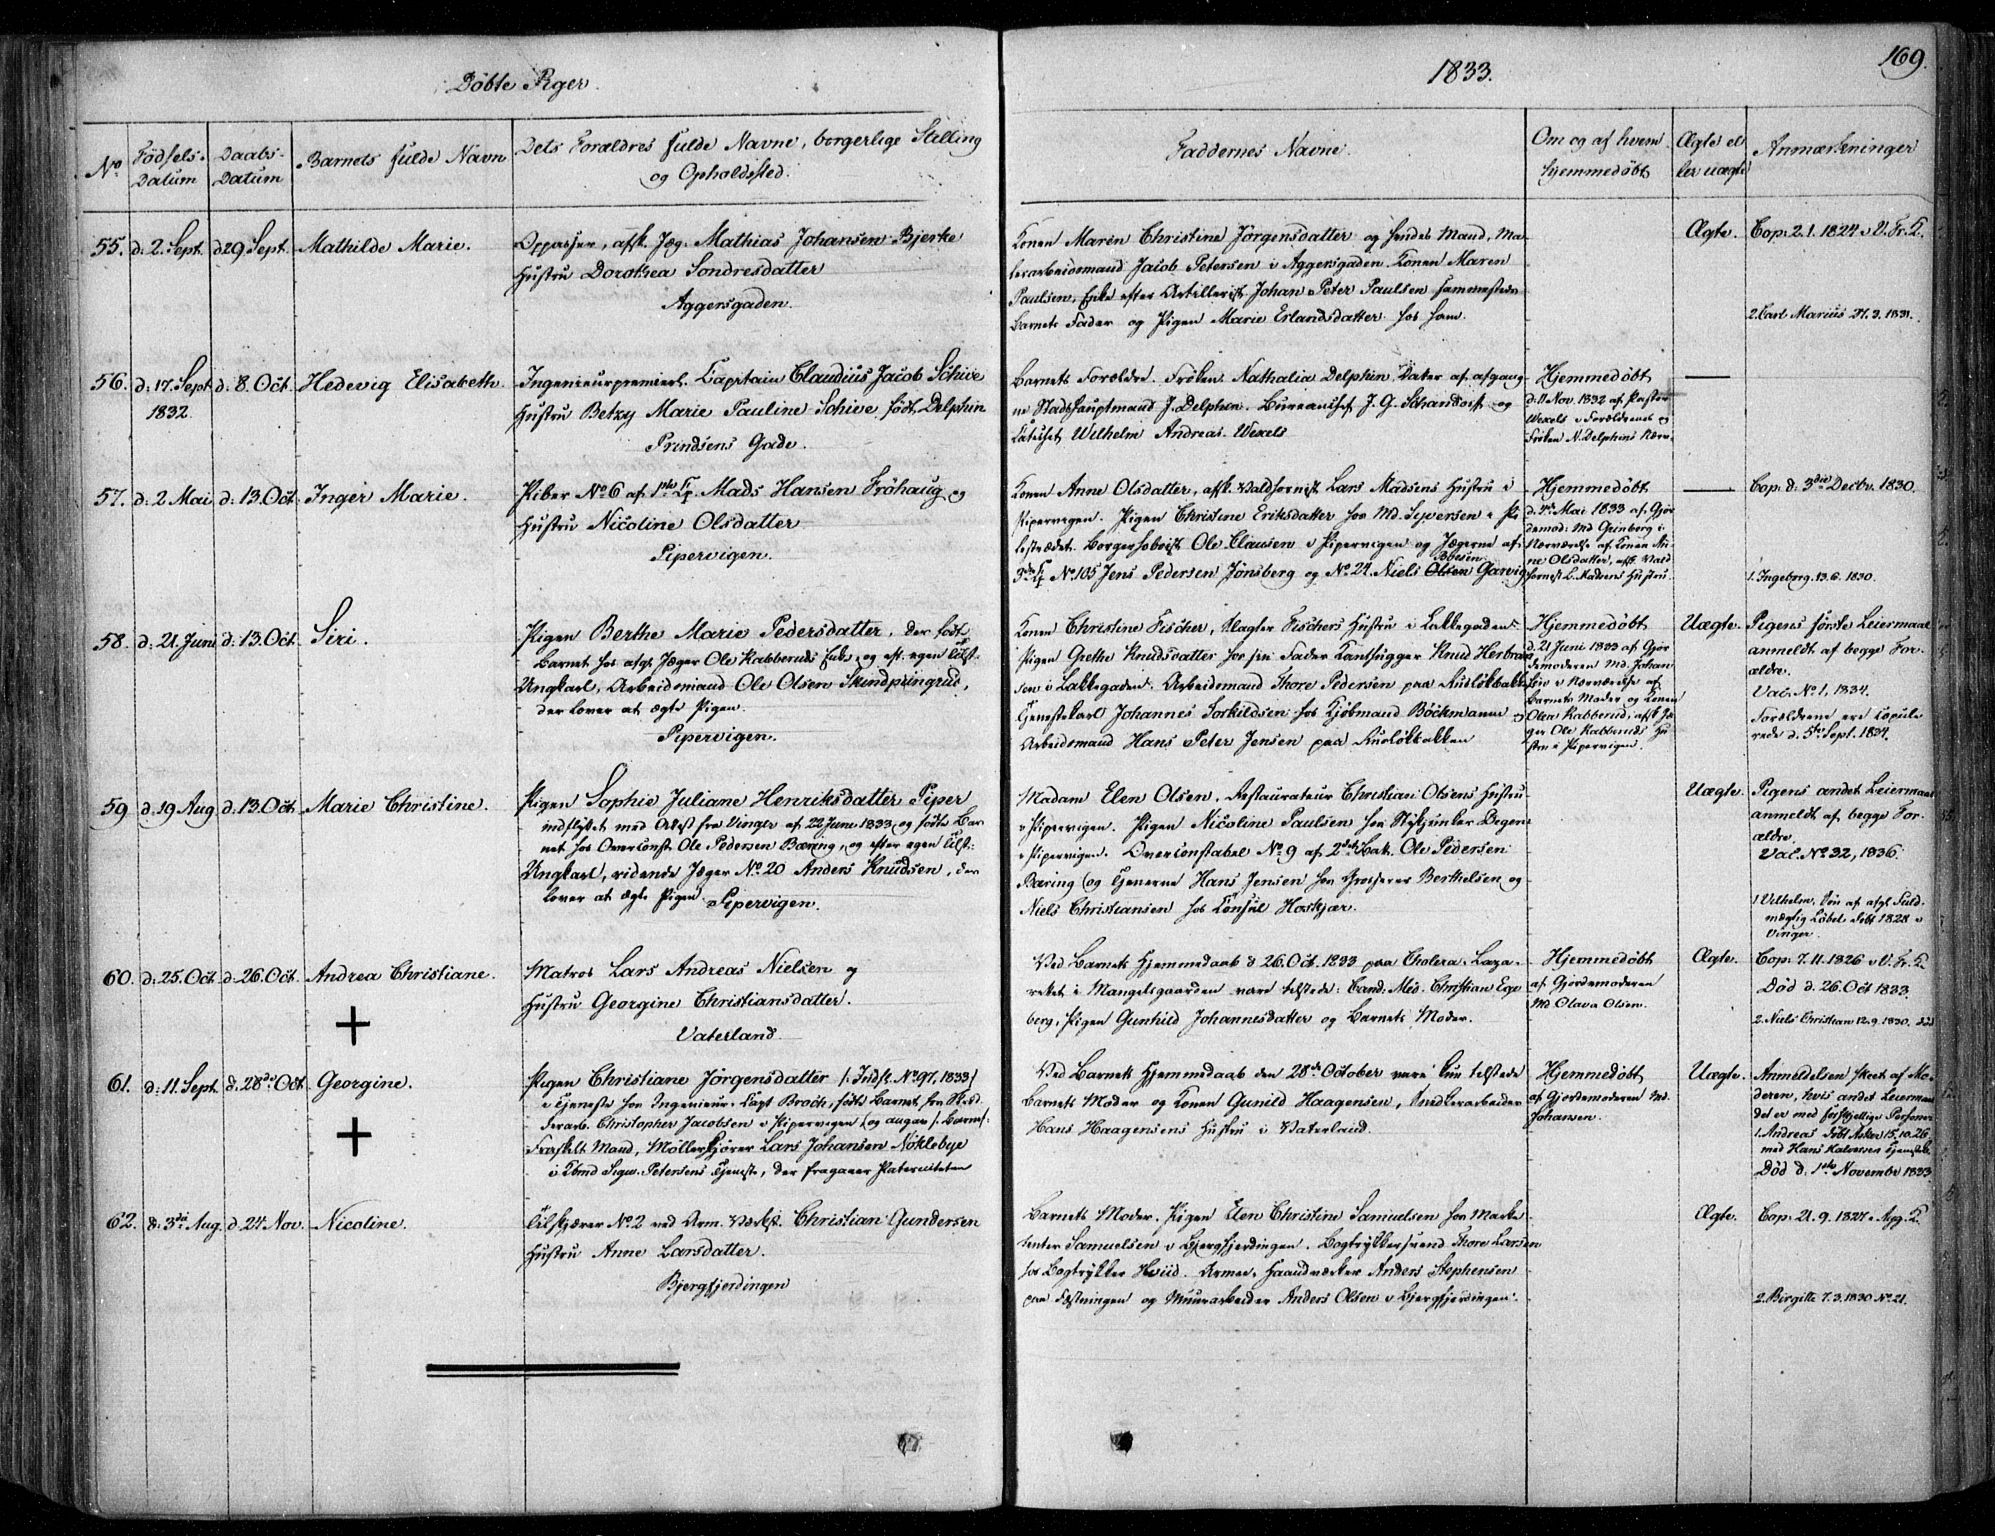 Döbte Piger.
1833.
169.
No
Födsels-
Datum
Daabs-
Datum
Barnets fulde Navn
Dets Forældres fulde Navne, borgerlige Stilling
og Opholdssted.
Faddernes Navne.
Om og af hvem
hjemmedöbt
Ægte el
ler uægte
Anmærkninger
55. d. 2. Sept. d 29 Sept. Mathilde Marie.
Oppasser, afsk. Jæg. Mathias Johansen Bjerke
Hustru Dorothea Sondresdatter
Aggersgaden.
Konen Maren Christine Jörgensdatter og hendes Mand, Ma-
lerarbeidsmand Jacob Petersen i Aggersgaden. Konen Maren
Paulsen, Enke efter Artillerist Johan Peter Paulsen sammesteds
Barnets Fader og Pigen Marie Erlandsdatter hos ham.
Ægte.
Cop. 2. 1. 1824 i V. Fr. K.
2. Carl Marius 27. 3. 1831.
56. d. 17. Sept d. 8. Oct. Hedevig Elisabeth
1832.
Ingenieurpremierl. Capitain Claudius Jacob Schive
Hustru Betzy Marie Pauline Schive, födt Delphin
Prindsens Gade.
Barnets Forældre. Fröken Nathalia Delphin, Dater af afgang-
ne Stadshauptmand J. Delphin. Bureauchef J. G. Schandorf og
Catechet Wilhelm Andreas Wexels
Hjemmedöbt
d. 11 Nov. 1832 af Pastor
Wexels i Forældrenes og
Fröken N. Delphins Nærv.
57. d. 2 Mai d. 13. Oct. Inger Marie.
Piber No 6 af 1ste Cp. Mads Hansen Fröhaug og
Hustru Nicoline Olsdatter
Pipervigen.
Konen Anne Olsdatter, afsk. Valdhornist Lars Madsens Hustru i
Pipervigen. Pigen Christine Eriksdatter hos Md. Syversen i Pi
lestrædet. Borgerhoboist Ole Clausen i Pipervigen og Jægerne af
3de Cp No 105 Jens Pedersen Jönsberg og No. 24. Niels Olsen Boesen Garvig
Hjemmedöbt
d. 4de Mai 1833 af Gjor
demod: Md Grinberg i
Nærværelse af Konen An
ne Olsdatter, afsk. Vald
hornist L. Madsens Hustru.
Cop. d. 3die Decbr. 1830.
1. Ingeborg. 13. 6. 1830.
58. d. 21. Juni d. 13. Oct. Siri.
Pigen Berthe Marie Pedersdatter, der födt
Barnet hos afg. Jæger Ole Rabberuds Enke, og eft. egen Tilst.
Ungkarl, Arbeidsmand Ole Olsen Skindpungrud,
der lover at ægte Pigen.
Pipervigen.
Konen Christine Fischer, Slagter Fischers Hustru i Lakkegaden
Pigen Grethe Knudsdatter hos sin Fader Kanthugger Knud Herbran
sen i Lakkegaden. Arbeidsmand Thore Pedersen paa Ruslökbakk
Tjenestekarl Johannes Torkildsen hos Kjöbmand Böckmann og
Arbeidsmand Hans Peter Jensen paa Ruslökbakken
Hjemmedöbt
d. 21 Juni 1833 af Gjor
demoderen Md. Johan
sen i Nærværelse af
Barnets Moder og Konen
Olea Rabberud, afsk Jæ
ger Ole Rabberuds Hu
stru i Pipervigen.
Uægte.
Pigens förste Leiermaal
anmeldt af begge For-
ældre.
Vac. No. 1, 1834.
Forældrene ere Copule
rede d. 5te Sept. 1834.
59 d. 19 Aug d. 13. Oct. Marie Christine.
Pigen Sophie Juliane Henriksdatter Piper
indflyttet med Attest fra Vinger af 22 Juni 1833, og födte Bar
net hos Overconst. Ole Pedersen Bæring, og efter egen Tilst:
Ungkarl, ridende Jæger No. 20 Anders Knudsen, der
lover at ægte Pigen. Pipervigen.
Madam Elen Olsen, Restaurateur Christian Olsens Hustru
i Pipervigen. Pigen Nicoline Paulsen hos Stykjunker Beger
i Pipervigen. Overconstabel No. 9 af 2det Bak. Ole Pedersen
Bæring (og Tjenerne Hans Jensen hos Grosserer Berthelsen og
Niels Christiansen hos Consul Hoskjær.
Uægte.
Pigens andet Leiermaal
anmeldt af begge For-
ældre.
Vac. No 32, 1836.
1 Vilhelm, Sön af afgl. Fuld-
mægtig Löbel Födt 1828 i
Vinger.
60. d. 25. Oct. d. 26. Oct. Andrea Christiane.
Matros Lars Andreas Nielsen og
Hustru Georgine Christiansdatter.
Vaterland.
Ved Barnets Hjemmedaab d 26. Oct. 1833 paa Cholera-Laza-
rethet i Mangelsgaarden vare tilstede: Cand: Med. Christian Ege
berg, Pigen Gunhild Johannesdatter og Barnets Moder.
Hjemmedöbt
af Gjordemoderen
Md Olava Olsen.
Ægte.
Cop. 7. 11. 1826 i V. Fr. K.
Död d. 26. Oct 1833.
2. Niels Christian 12. 9. 1830. död
61. d. 11. Sept. d. 28de Oct. Georgine.
Pigen Christiane Jörgensdatter /: Indfl. No. 97, 1833/
i Tjeneste hos Ingenieur-Capt Broch, födte Barnet hos Sned
kerarb. Christopher Jacobsen i Pipervigen (og angav s. Barnef:
Fraskilt Mand, Möllerkjörer Lars Johansen Nöklebye
i Kbmd Sigw. Petersens Tjeneste, der fragaaer Paterniteten
Ved Barnets Hjemmedaab den 28de October vare kun tilstede
Barnets Moder og Konen Gunild Haagensen, Snedkerarbeider
Hans Haagensens Hustru i Vaterland.
Hjemmedöbt
af Gjordemoderen Md.
Johansen.
Uægte.
Anmeldelsen skeet af Mo-
deren, hvis andet Leiermaal
det er med forskjellige Personer
1. Andreas Födt Asker 15. 10. 26
med Hans Halvorsen Tjenestek.
Död d. 1ste Novembr 1833
62. d. 3die Aug. d. 24. Nov. Nicoline.
Tilskjærer No. 2 ved Arm. Værkst. Christian Gundersen
Hustru Anne Larsdatter.
Bjergfjerdingen
Barnets Moder. Pigen Elen Christine Samuelsen hos Marke
tenter Samuelsen i Bjergfjerdingen. Bogtrykkersvend Thore Larsen
hos Bogtrykker Hviid. Armee-Haandværker Anders Stephensen
paa Fæstningen og Muurarbeider Anders Olsen i Bjergfjerdingen.
Ægte.
Cop. 21. 9. 1827 i Agg. K.
2. Birgitte 7. 3. 1830 No. 21.